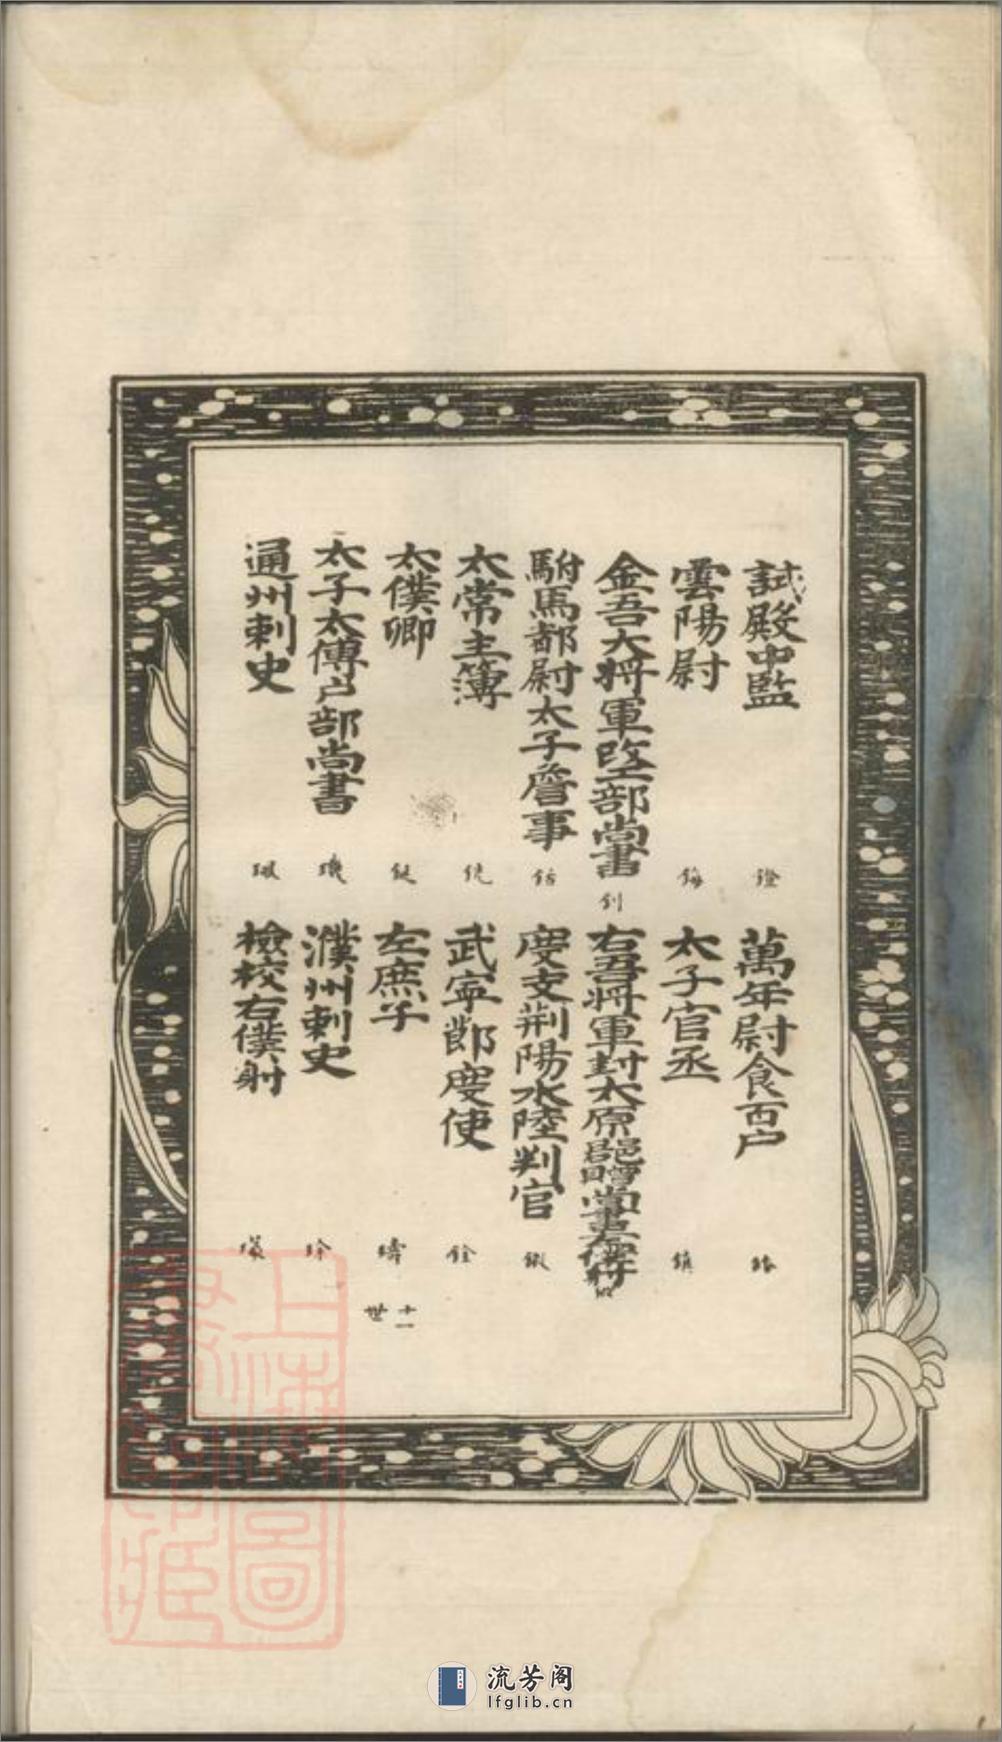 試殿中監 鐙
雲陽尉 鋂
金吾大將軍改工部尚書 釗
駙馬都尉太子詹事 銛
太常主簿 銑
太僕卿 鋋
太子太傅户部尚書 璣
通州刺史 珮
萬年尉食百户
太子官丞 鎮
右吾將軍封太原
度支荊陽水陸判官
武寧節度使 銓
左庶子 璹
十一世
濮州刺史 珍
檢校右僕射
上海圖書館藏
流芳阁
lfglib.cn